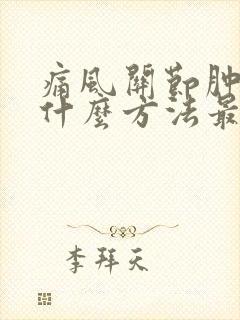 痛風關節肿
什麼方法最
李拜天